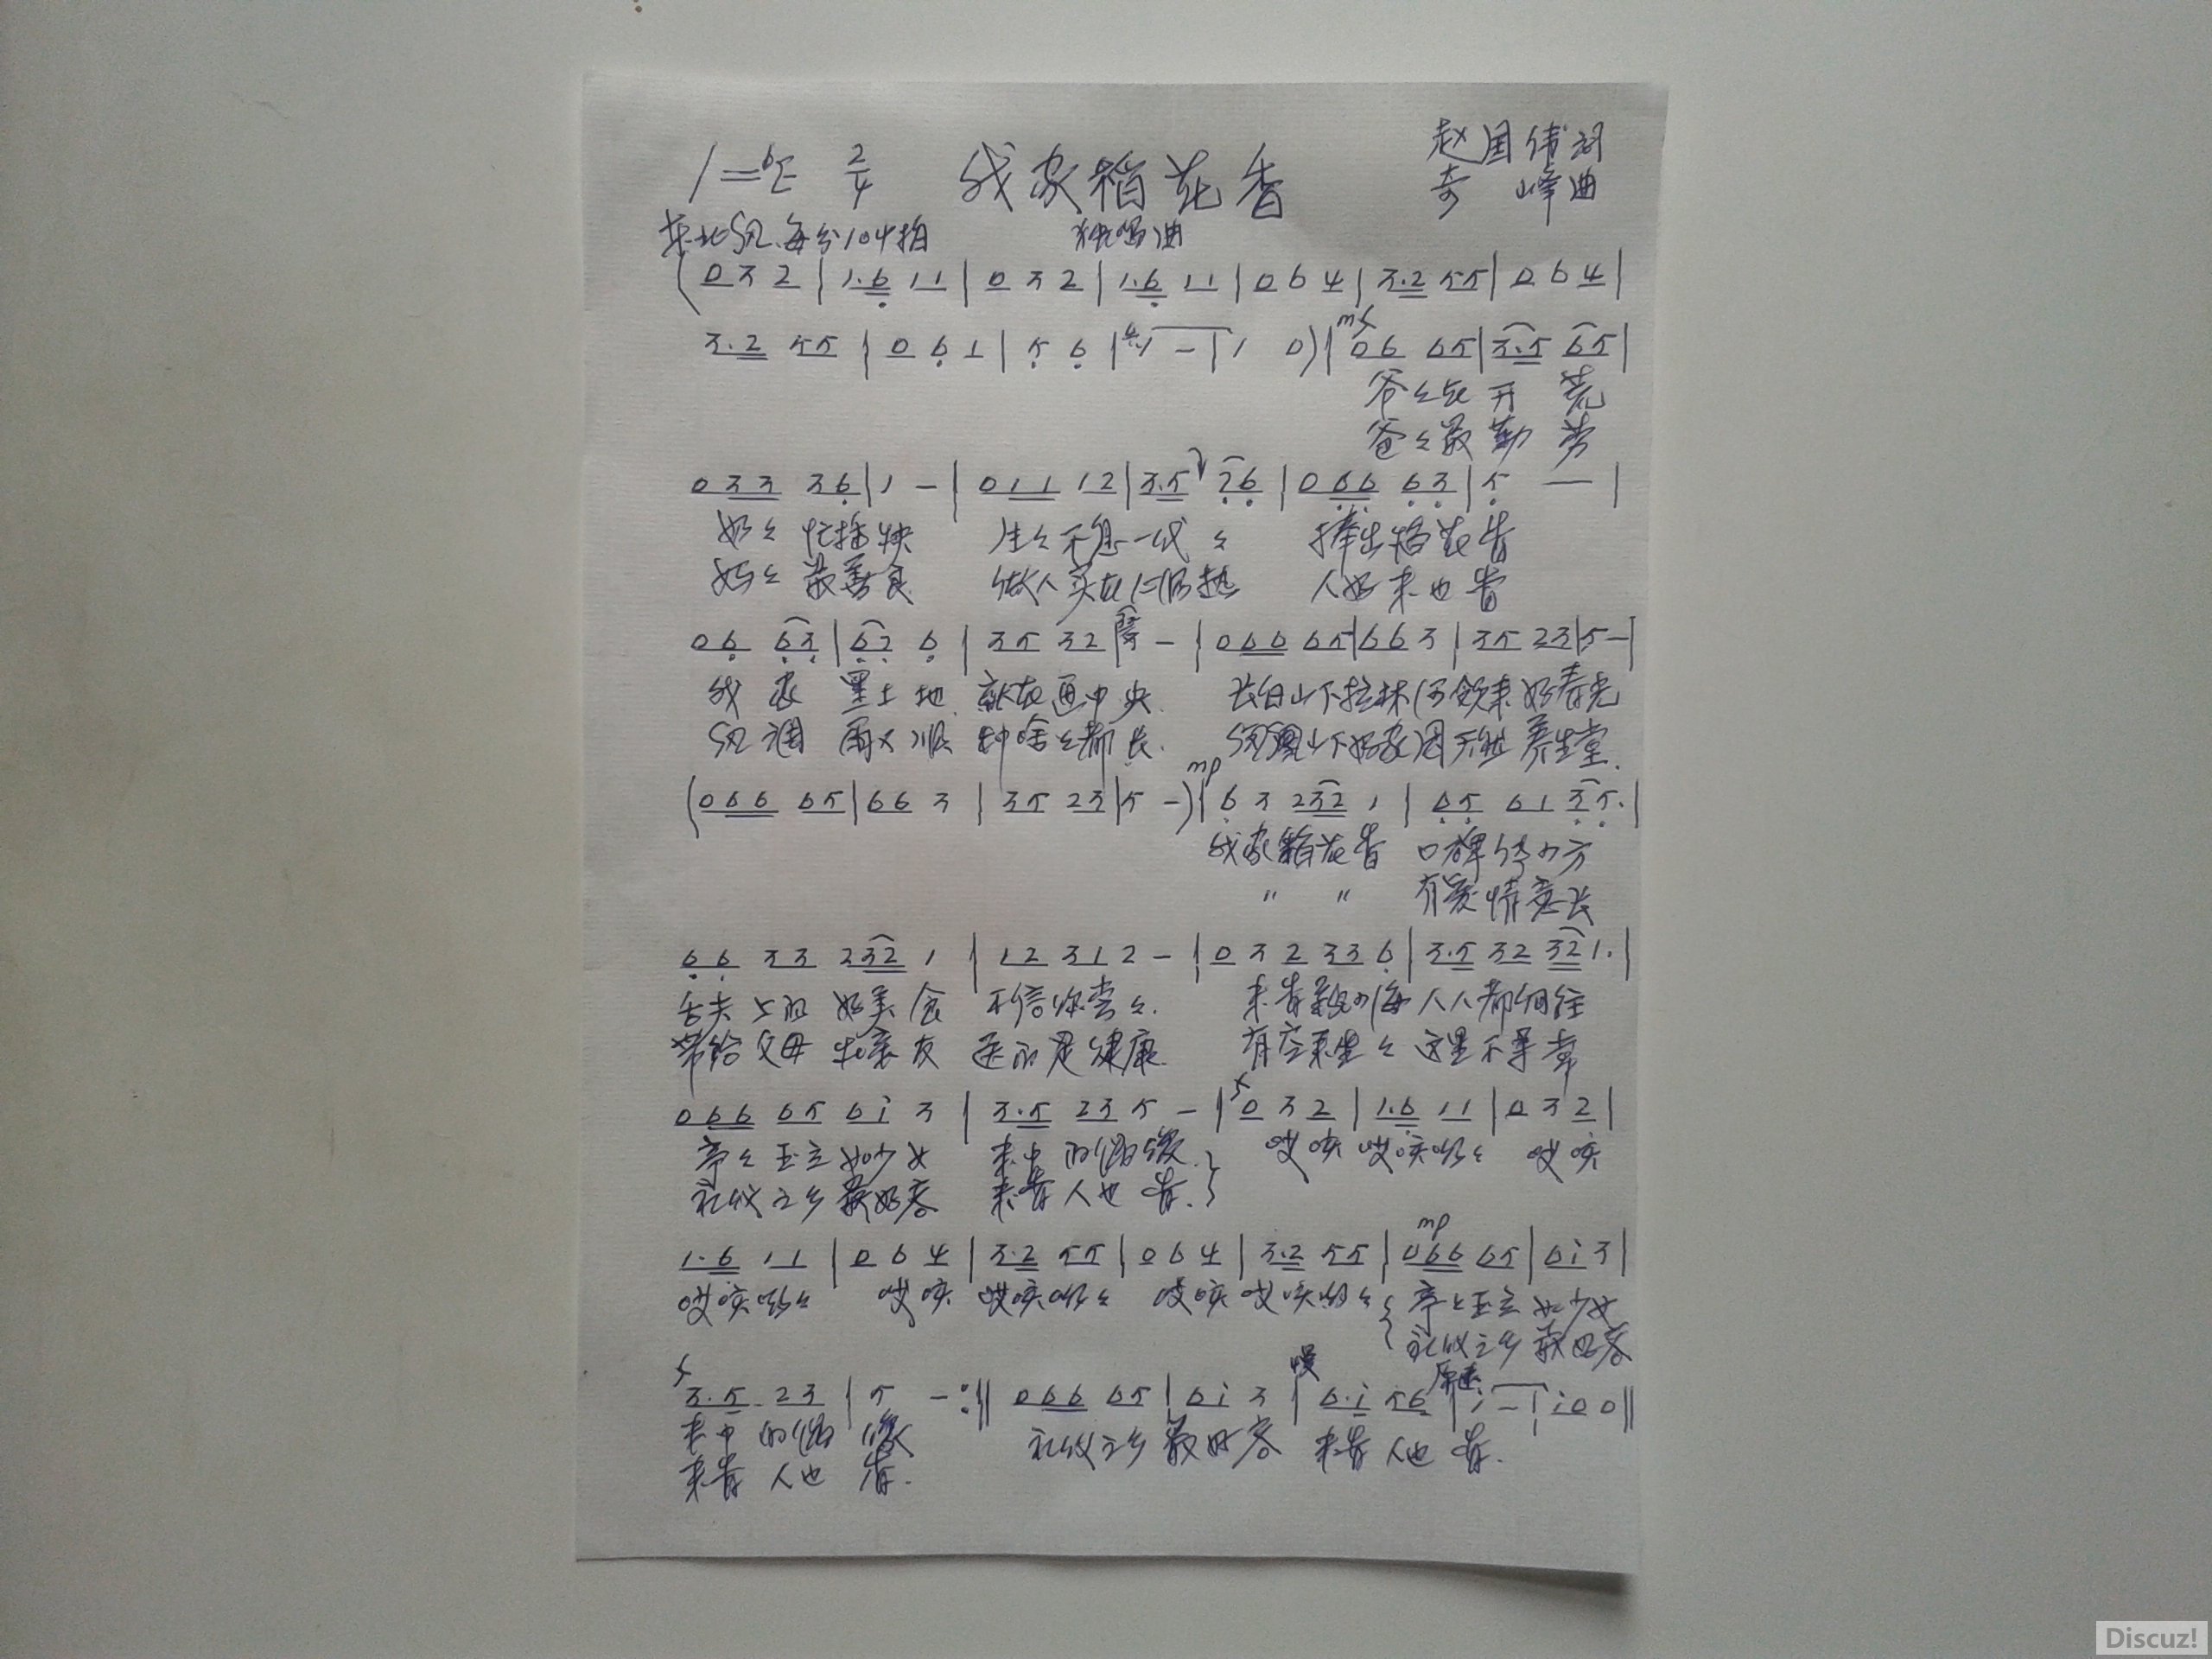 1=♭E 2/4 我家稻花香 赵国伟词
奇峰曲
东北风、每分104拍 独唱曲
(0 3 2 | 1.6 1 1 | 0 3 2 | 1.6 1 1 | 0 6 4 | 3.2 5 5 | 0 6 4 |
3.2 5 5 | 0 6 1 | 5 6 | 1 - | 1 0) | mf 0 6 6 5 | 3.5 6 5 |
爷々 开 荒
爸々最 勤 劳
0 3 3 3 6 | 1 - | 0 1 1 1 2 | 3.5 2 6 | 0 6 6 6 3 | 5 — |
奶々 忙插秧 生々不息一代々 捧出稻花香
妈々 最善良 做人实在 热 人好米也香
0 6 6 3 | 6 2 6 | 3 5 3 2 | 3 - | 0 6 6 6 5 | 6 6 3 | 3 5 2 3 | 5 - |
我 家 黑土 地 就在 中央 长白山下拉林河 来好春光
风 调 雨又 顺 种啥々都长 凤凰山下好家园天然养生堂
(0 6 6 6 5 | 6 6 3 | 3 5 2 3 | 5 - ) | mp 6 3 2 3 2 1 | 6 5 6 1 3 5. |
我家稻花香 口碑传四方
〃 〃 有爱情意长
6 6 3 3 2 3 2 1 | 1 2 3 1 2 - | 0 3 2 3 3 6 | 3.5 3 2 3 2 1. |
舌尖上的 好美食 不信你尝々 米香飘四海 人人都向往
带给父母和亲友 送的是健康 有空来坐々 这里不寻常
0 6 6 6 5 6 i 3 | 3.5 2 3 5 - | f 0 3 2 | 1.6 1 1 | 0 3 2 |
亭々玉立如少女 米中的 哎咳 哎咳哟々 哎咳
礼仪之乡最好客 米香人也香 }
1.6 1 1 | 0 6 4 | 3.2 5 5 | 0 6 4 | 3.2 5 5 | mp 0 6 6 6 5 | 6 i 3 |
哎咳哟々 哎咳 哎咳哟々 哎咳 哎咳哟々 { 亭々玉立如少女
礼仪之乡最好客
f 3.5 2 3 | 5 - :‖ 0 6 6 6 5 | 6 i 3 | 慢 6.i 5 6 | 原速 i - | i 0 0 ‖
米中的 礼仪之乡最好客 米香人也香.
米香人也香.
Discuz!